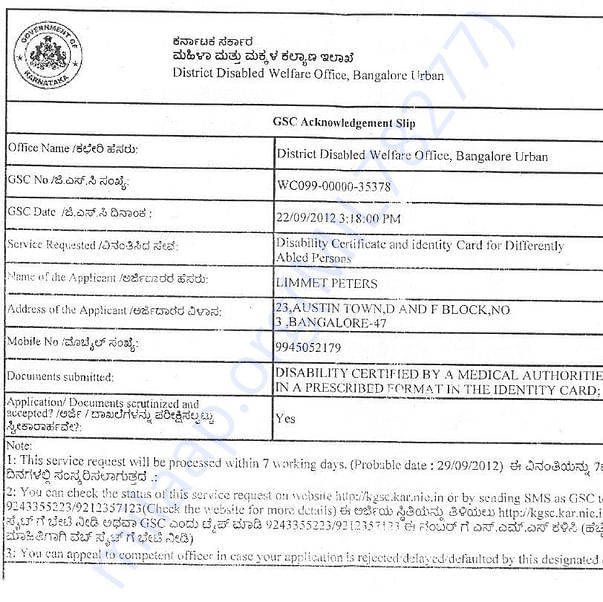 GOVERNMENT OF KARNATAKA
ಕರ್ನಾಟಕ ಸರ್ಕಾರ
ಮಹಿಳಾ ಮತ್ತು ಮಕ್ಕಳ ಕಲ್ಯಾಣ ಇಲಾಖೆ
District Disabled Welfare Office, Bangalore Urban
GSC Acknowledgement Slip
Office Name /ಕಛೇರಿ ಹೆಸರು: District Disabled Welfare Office, Bangalore Urban
GSC No /ಜಿ.ಎಸ್.ಸಿ ಸಂಖ್ಯೆ: WC099-00000-35378
GSC Date /ಜಿ.ಎಸ್.ಸಿ ದಿನಾಂಕ : 22/09/2012 3:18:00 PM
Service Requested /ವಿನಂತಿಸಿದ ಸೇವೆ: Disability Certificate and identity Card for Differently
Abled Persons
Name of the Applicant /ಅರ್ಜಿದಾರರ ಹೆಸರು: LIMMET PETERS
Address of the Applicant /ಅರ್ಜಿದಾರರ ವಿಳಾಸ: 23,AUSTIN TOWN,D AND F BLOCK,NO
3 ,BANGALORE-47
Mobile No /ಮೊಬೈಲ್ ಸಂಖ್ಯೆ: 9945052179
Documents submitted: DISABILITY CERTIFIED BY A MEDICAL AUTHORITIE
IN A PRESCRIBED FORMAT IN THE IDENTITY CARD;
Application/ Documents scrutinized and
accepted? /ಅರ್ಜಿ / ದಾಖಲೆಗಳನ್ನು ಪರೀಕ್ಷಿಸಲ್ಪಟ್ಟು
ಸ್ವೀಕಾರಾರ್ಹವೇ?: Yes
Note:
1: This service request will be processed within 7 working days. (Probable date : 29/09/2012) ಈ ವಿನಂತಿಯನ್ನು 7
ದಿನಗಳಲ್ಲಿ ಸಂಸ್ಕರಿಸಲಾಗುತ್ತದೆ .:
2: You can check the status of this service request on website http://kgsc.kar.nic.in or by sending SMS as GSC to
9243355223/9212357123(Check the website for more details) ಈ ಅರ್ಜಿಯ ಸ್ಥಿತಿಯನ್ನು ತಿಳಿಯಲು http://kgsc.kar.nic.i
ಸೈಟ್ ಗೆ ಭೇಟಿ ನೀಡಿ ಅಥವಾ GSC ಎಂದು ಟೈಪ್ ಮಾಡಿ 9243355223/9212357123 ಈ ನಂಬರ್ ಗೆ ಎಸ್.ಎಮ್.ಎಸ್ ಕಳಿಸಿ
ಮಾಹಿತಿಗಾಗಿ ವೆಬ್ ಸೈಟ್ ಗೆ ಭೇಟಿ ನೀಡಿ)
3: You can appeal to competent officer in case your application is rejected/delayed/defaulted by this designated